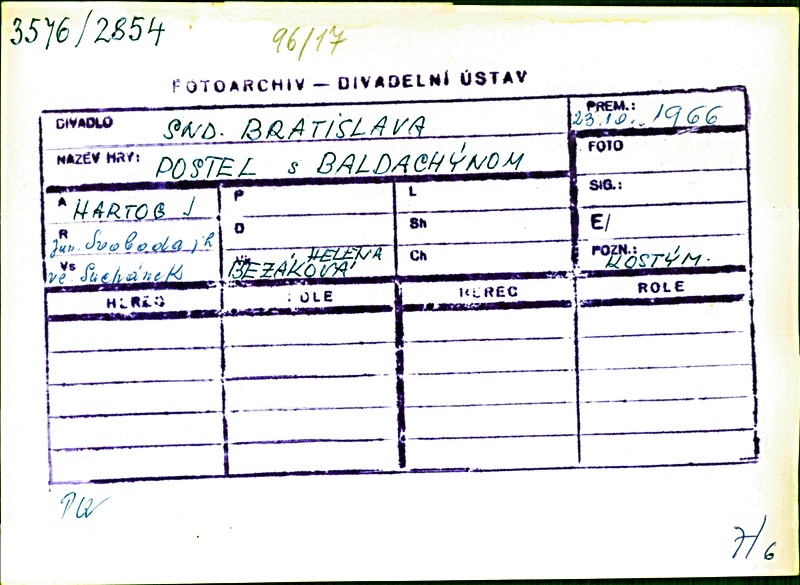 3576/2854
96/17
FOTOARCHIV — DIVADELNÍ ÚSTAV
DIVADLO SND. BRATISLAVA
PREM.: 23.10. 1966
NÁZEV HRY: POSTEL s BALDACHÝNOM
FOTO
SIG.:
E/
POZN.: KOSTÝM.
A HARTOG J
R Jur. Svoboda j.h
Vs ve Suchánek
P
D
HELENA
BEZÁKOVÁ
L
Sh
Ch
HEREC ROLE HEREC ROLE
PQ
7/6